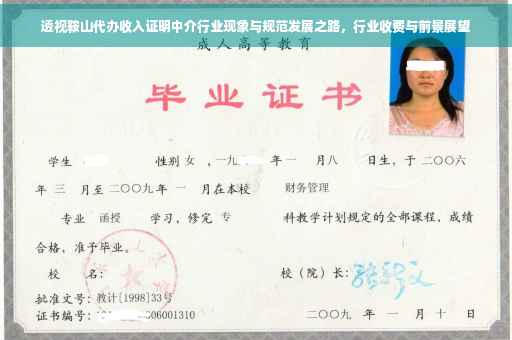 透视鞍山代办收入证明中介行业现象与规范发展之路，行业收费与前景展望
成人高等教育
毕业证书
学生 性别 女 ，一九 年 一 月 八 日生，于 二〇〇六
年 三 月至 二〇〇九 年 一 月在本校 财务管理
专业 函授 学习，修完 专 科教学计划规定的全部课程，成绩
合格，准予毕业。
校 名： 校（院）长：
批准文号：教计[1998]33号
证书编号： 06001310 二〇〇九 年 一 月 十 日